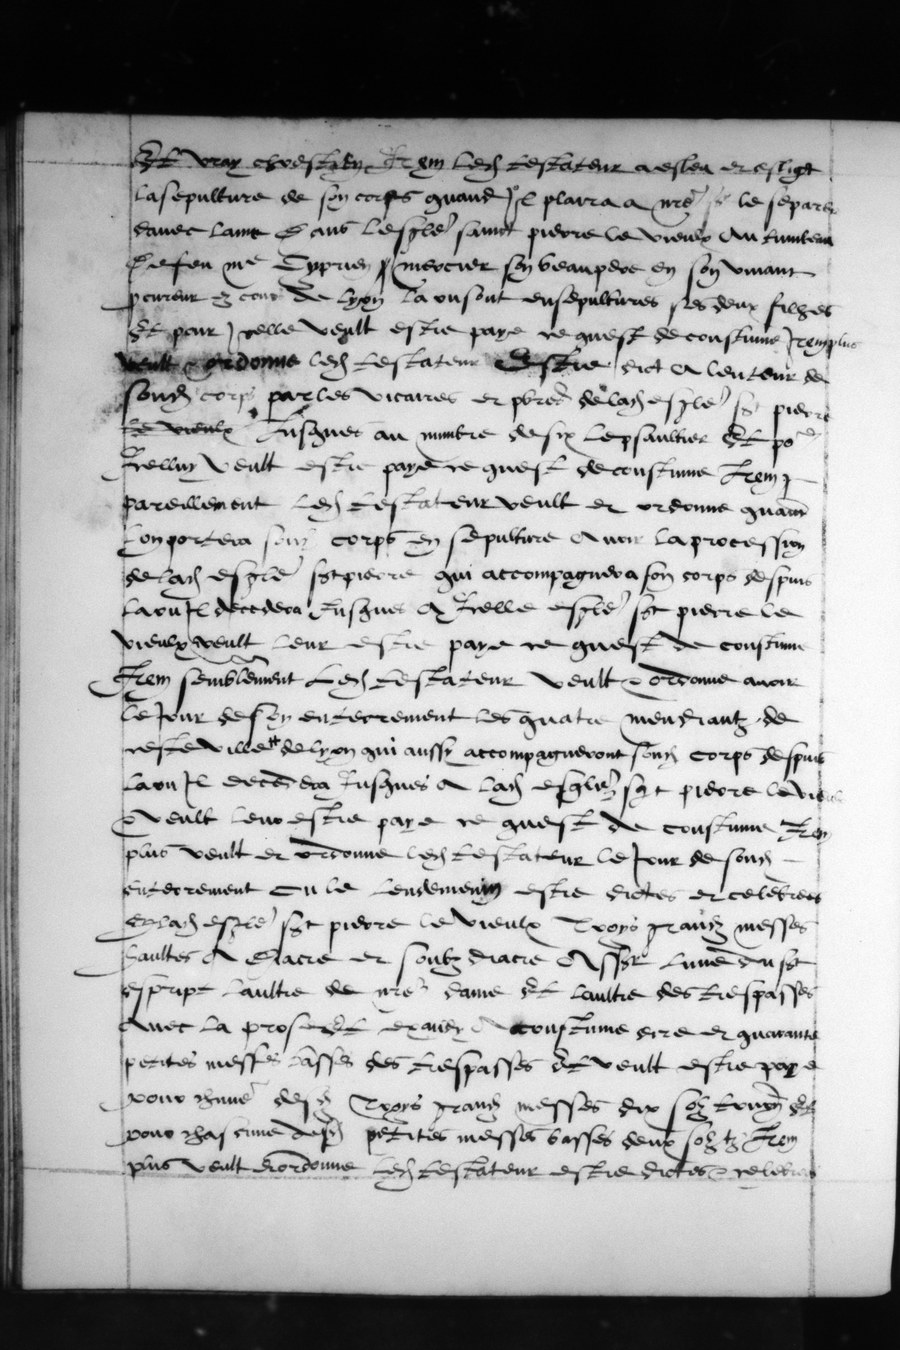 Et vray chrestien Item led testateur a esleu et eslige
la sepulture de son corps quand Il plaira a nre sr le separer
davec lame dans lesglе sainct pierre le vieulx Au tumbeau
de feu me Cyprien mercier son beau pere en son vivant
procureur es cour de lyon la ou sont ensepultures ses deux filhes
Et pour Icelle veult estre paye ce quest de coustume Item plus
veult & ordonne led testateur Estre dict a lentour de
sond corps par les vicaires et pbres de lad esglе st pierre
le vieulx Jusques au nombre de six le psaultier Et po
Icelluy veult estre paye ce quest de coustume Item
pareillement led testateur veult et ordonne quand
Lon portera sond corps en sepulture Avoir la procession
de lad esglе st pierre qui accompagnera son corps despuis
la ou Il decedera Jusques A Icelle esglе st pierre le
vieulx veult leur estre paye ce quest de coustume
Item semblement Led testateur veult & ordonne avoir
le Jour de son enterrement les quatre mendiantz de
ceste ville de lyon qui aussy accompagneront sond corps despuis
la ou Il decedera Jusques A lad esglise st pierre le vieulx
& veult leur estre paye ce quest de coustume Item
plus veult et ordonne led testateur le Jour de sond
enterrement ou le lendemein estre dictes et celebrees
En lad esglе st pierre le vieulx Troys grandz messes
haultes A diacre et soubz diacre Assr lune du st
esprit laultre de nre dame Et laultre des trespasses
Avec la prose Et A coustume dire et quarante
petites messes basses des trespasses Et veult estre paye
pour chune desd Troys grands messes dix solz tournz Et
pour chascune desd petites messes basses deux solz tz Item
plus veult et ordonne led testateur estre dictes & celebrees